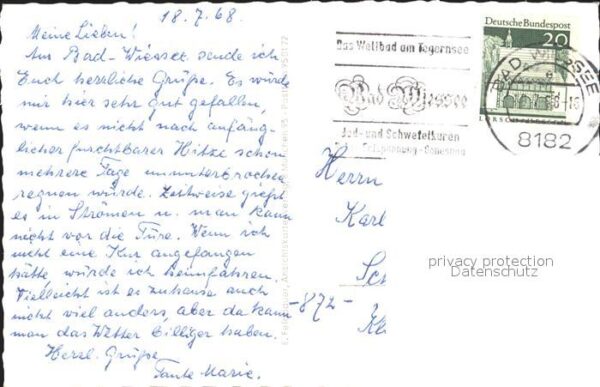 18.7.68.
Meine Lieben!
Aus Bad-Wiessee sende ich
Euch herzliche Grüße. Es würde
mir hier sehr gut gefallen,
wenn es nicht nach anfäng-
licher furchtbarer Hitze schon
mehrere Tage ununterbrochen
regnen würde. Zeitweise gießt
es in Strömen u. man kann
nicht vor die Türe. Wenn ich
nicht eine Kur angefangen
hätte, würde ich heimfahren.
Vielleicht ist es zuhause auch
nicht viel anders, aber da kann
man das Wetter billiger haben.
Herzl. Grüße
Tante Marie.
Das Weltbad am Tegernsee
Bad Wiessee
Jod- und Schwefelkuren
Entspannung - Genesung
Deutsche Bundespost
20
LORSCH
BAD WIESSEE
8182
Herrn
Karl
Sc
-872-
privacy protection
Datenschutz